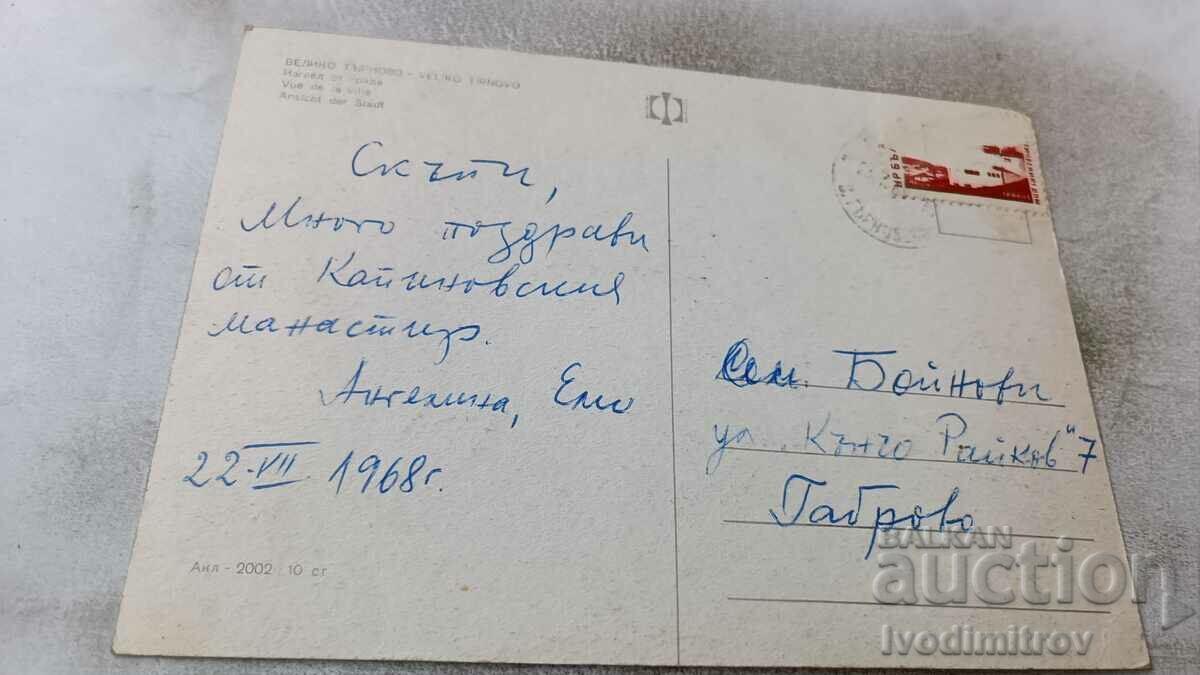 ВЕЛИКО ТЪРНОВО - VELIKO TIRNOVO
Изглед от града
Vue de la ville
Ansicht der Stadt
Скъпи,
Много поздрави
от Капиновския
манастир.
Ангелина, Емо
22-VII 1968г.
Акл - 2002 10 ст
Сем. Бойнови
ул. „Кънчо Райков" 7
Габрово
BALKAN
auction
Ivodimitrov